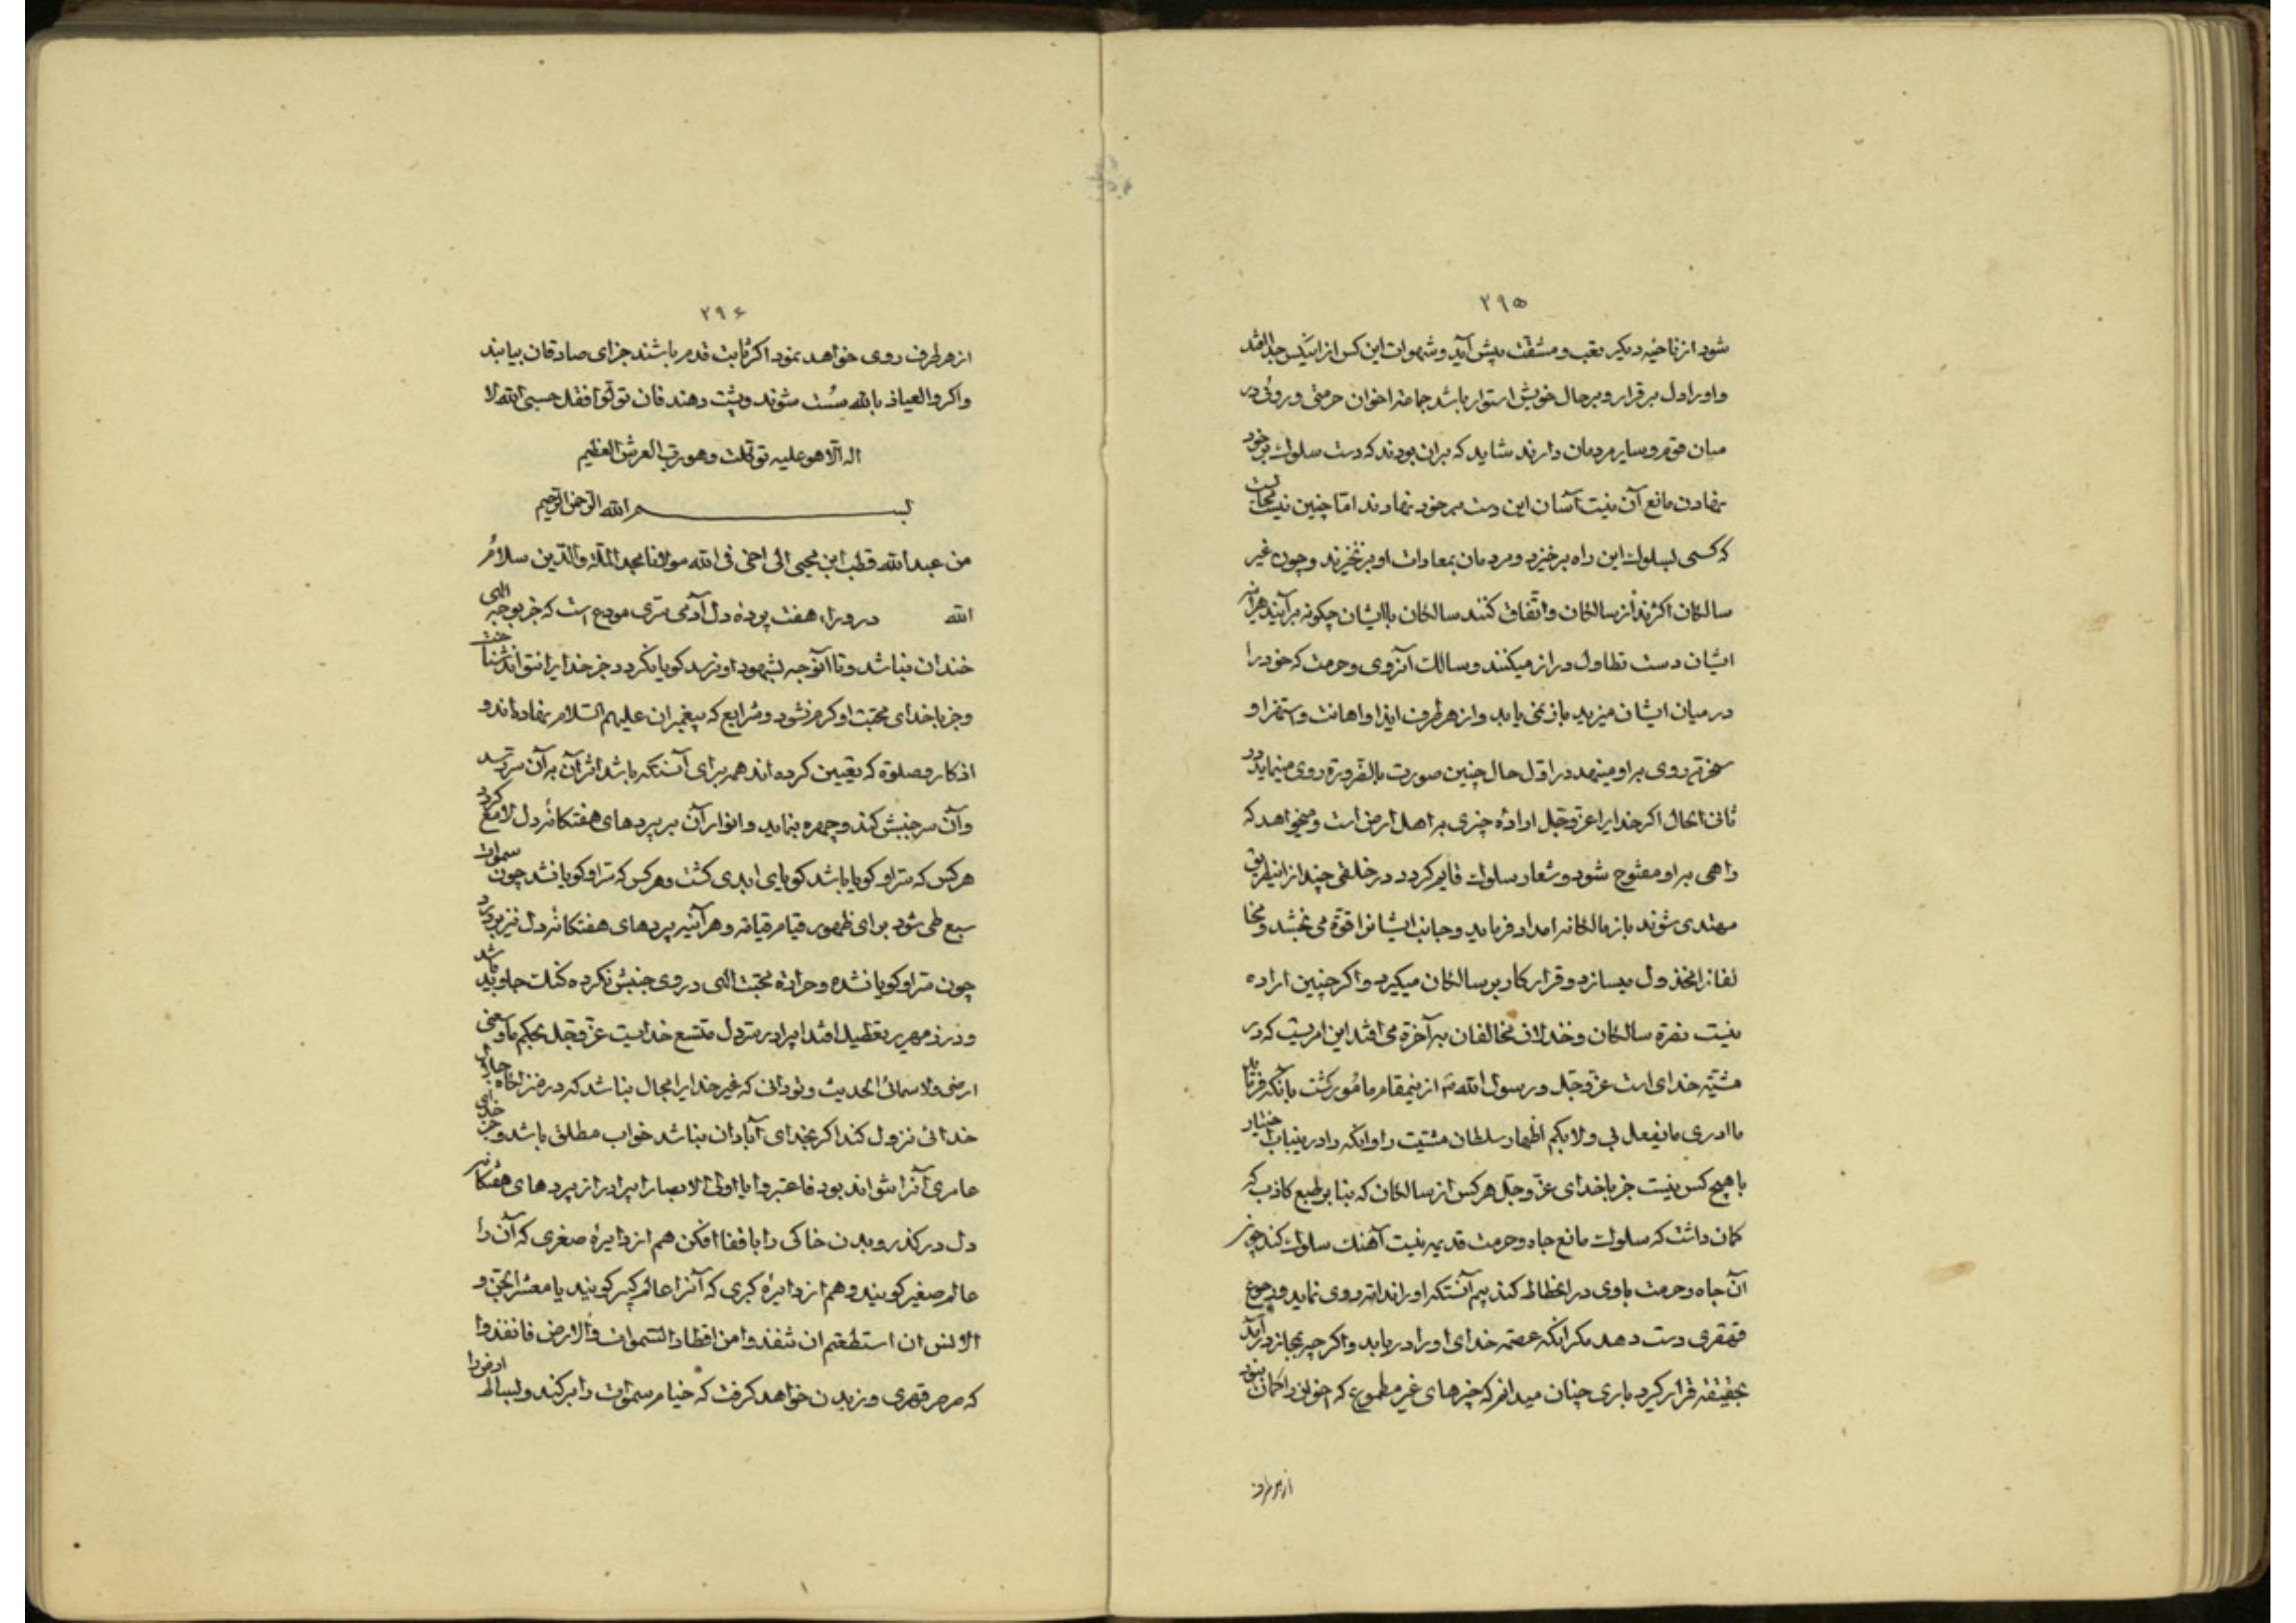 ۲۹۵
شود از ناحیه دیکر تعب و مشقت پیش آید و شهوات این کس از اینکس جدا افتد
و او را دل برقرار و بر حال خویش استوار باشد جماعة اخوان حرمتی و روئی در
میان قوم و سایر مردمان دارند شاید که بران بودند که دست سلوک بر خود
نهادن مانع آن نیست آسان این دست بر خود نهادند امّا چنین نیست محالست
که کسی بسلوک این راه برخیزد و مردمان بمعادات او برنخیزند و چون غیر
سالکان اکثرند از سالکان و اتّفاق کنند سالکان با ایشان چکونه برآیند هرآینه
ایشان دست تطاول دراز میکنند و سالک آنروی و حرمت که خود را
در میان ایشان میدید باز نمی یابد و از هر طرف ایذا و اهانت و استهزا و
سخریه روی براو مینهد در اوّل حال چنین صورت بالضّروره روی مینماید در
ثانی الحال اکر خدایرا عزّ و جلّ ارادهٔ چیزی به اهل ارض است و میخواهد که
راهی براو مفتوح شود و شعار سلوک قایم کردد در خلقی چند از اینطریق
مهتدی شوند باز مالکانه امداد فرماید و جانب ایشانرا قوّة می بخشد و مخا
لفانرا مخذول میسازد و قرار کار بر سالکان میکیرد و اکر چنین اراده
نیست نصرة سالکان و خذلان مخالفان به آخرة می افتد این امریست که در
مشیّة خدای است عزّ و جلّ و رسول الله از ینمقام مامور کشت بانکه فرماید
ما ادری ما یفعل بی ولا بکم اظهار سلطان مشیّت را و انکه را در ینباب اختیار
با هیچ کس نیست جز با خدای عزّ و جلّ هر کس از سالکان که بنا بر طمع کاذب که
کمان داشت که سلوک مانع جاه و حرمت قدیم نیست آهنک سلوک کند چون
آن جاه و حرمت با وی در انحطاط کند بیم آنستکه او را ندامة روی نماید و رجوع
قهقری دست دهد مکر انکه عصمة خدای او را دریابد و اکر چه بمجاز درآید
بحقیقة قرار کیرد باری چنان میدانم که چیزهای غیر مطموع که اخوان را کمان نبود
از هر طرف
۲۹۶
از هر طرف روی خواهد نمود اکر ثابت قدم باشند جزای صادقان بیابند
و اکر والعیاذ بالله سُست شوند و پشت دهند فان تولّوا فقل حسبی الله لا
اله الّا هو علیه توکّلت وهو ربّ العرش العظیم
بسم الله الرّحمن الرّحیم
من عبدالله قطب ابن محیی الی اخی فی الله مولانا مجد الملّة والدّین سلامُ
الله در وراء هفت پردهٔ دل آدمی سّری مودع است که جز بوجه الهی
خندان نباشد و تا آنوجه بشهود او نرسد کویا نکردد جز خدایرا نتواند شناخت
و جز با خدای محبّت او کرم نشود و شرایع که پیغمبران علیهم السّلام نهاده اند و
اذکار و صلوة که تعیین کرده اند همه برای آنستکه باشد اثر آن به آن سر رسد
و آن سر جنبش کند و چهره بنماید و انوار آن بر پردهای هفتکانهٔ دل لامع کردد
هر کس که سّر او کویا باشد کویای ابدی کشت و هر کس که سّر او کویا نشد چون سموات
سبع طی شود برای ظهور قیام قیامة و هر آینه پردهای هفتکانهٔ دل نیز
چون سّر او کویا نشده و حرارة محبّت الهی در وی جنبش نکرده کنک جاوید باشد
و در زمهریر تعطیل افتد ایبرادر سّر دل متّسع خدایست عزّ و جلّ بحکم ما وسعنی
ارضی ولا سمائی الحدیث و تو دانی که غیر خدایرا مجال نباشد که در منزلکاه
خدائی نزول کند اکر بخدای آبادان نباشد خراب مطلق باشد و جز خدای
عامری آنرا نتواند بود فاعتبروا یا اولی الابصار ایبرادر از پردهای هفتکانه
دل در کذر و بدن خاکی را با قفا افکن هم از دایرهٔ صغری که آن را
عالم صغیر کویند و هم از دایرهٔ کبری که آنرا عالم کبیر کویند یا معشر الجنّ و
الانس ان استطعتم ان تنفذوا من اقطار السّموات والارض فانفذوا
که صرصر قهری وزیدن خواهد کرفت که خیام سموات را برکند و بساط ارض را